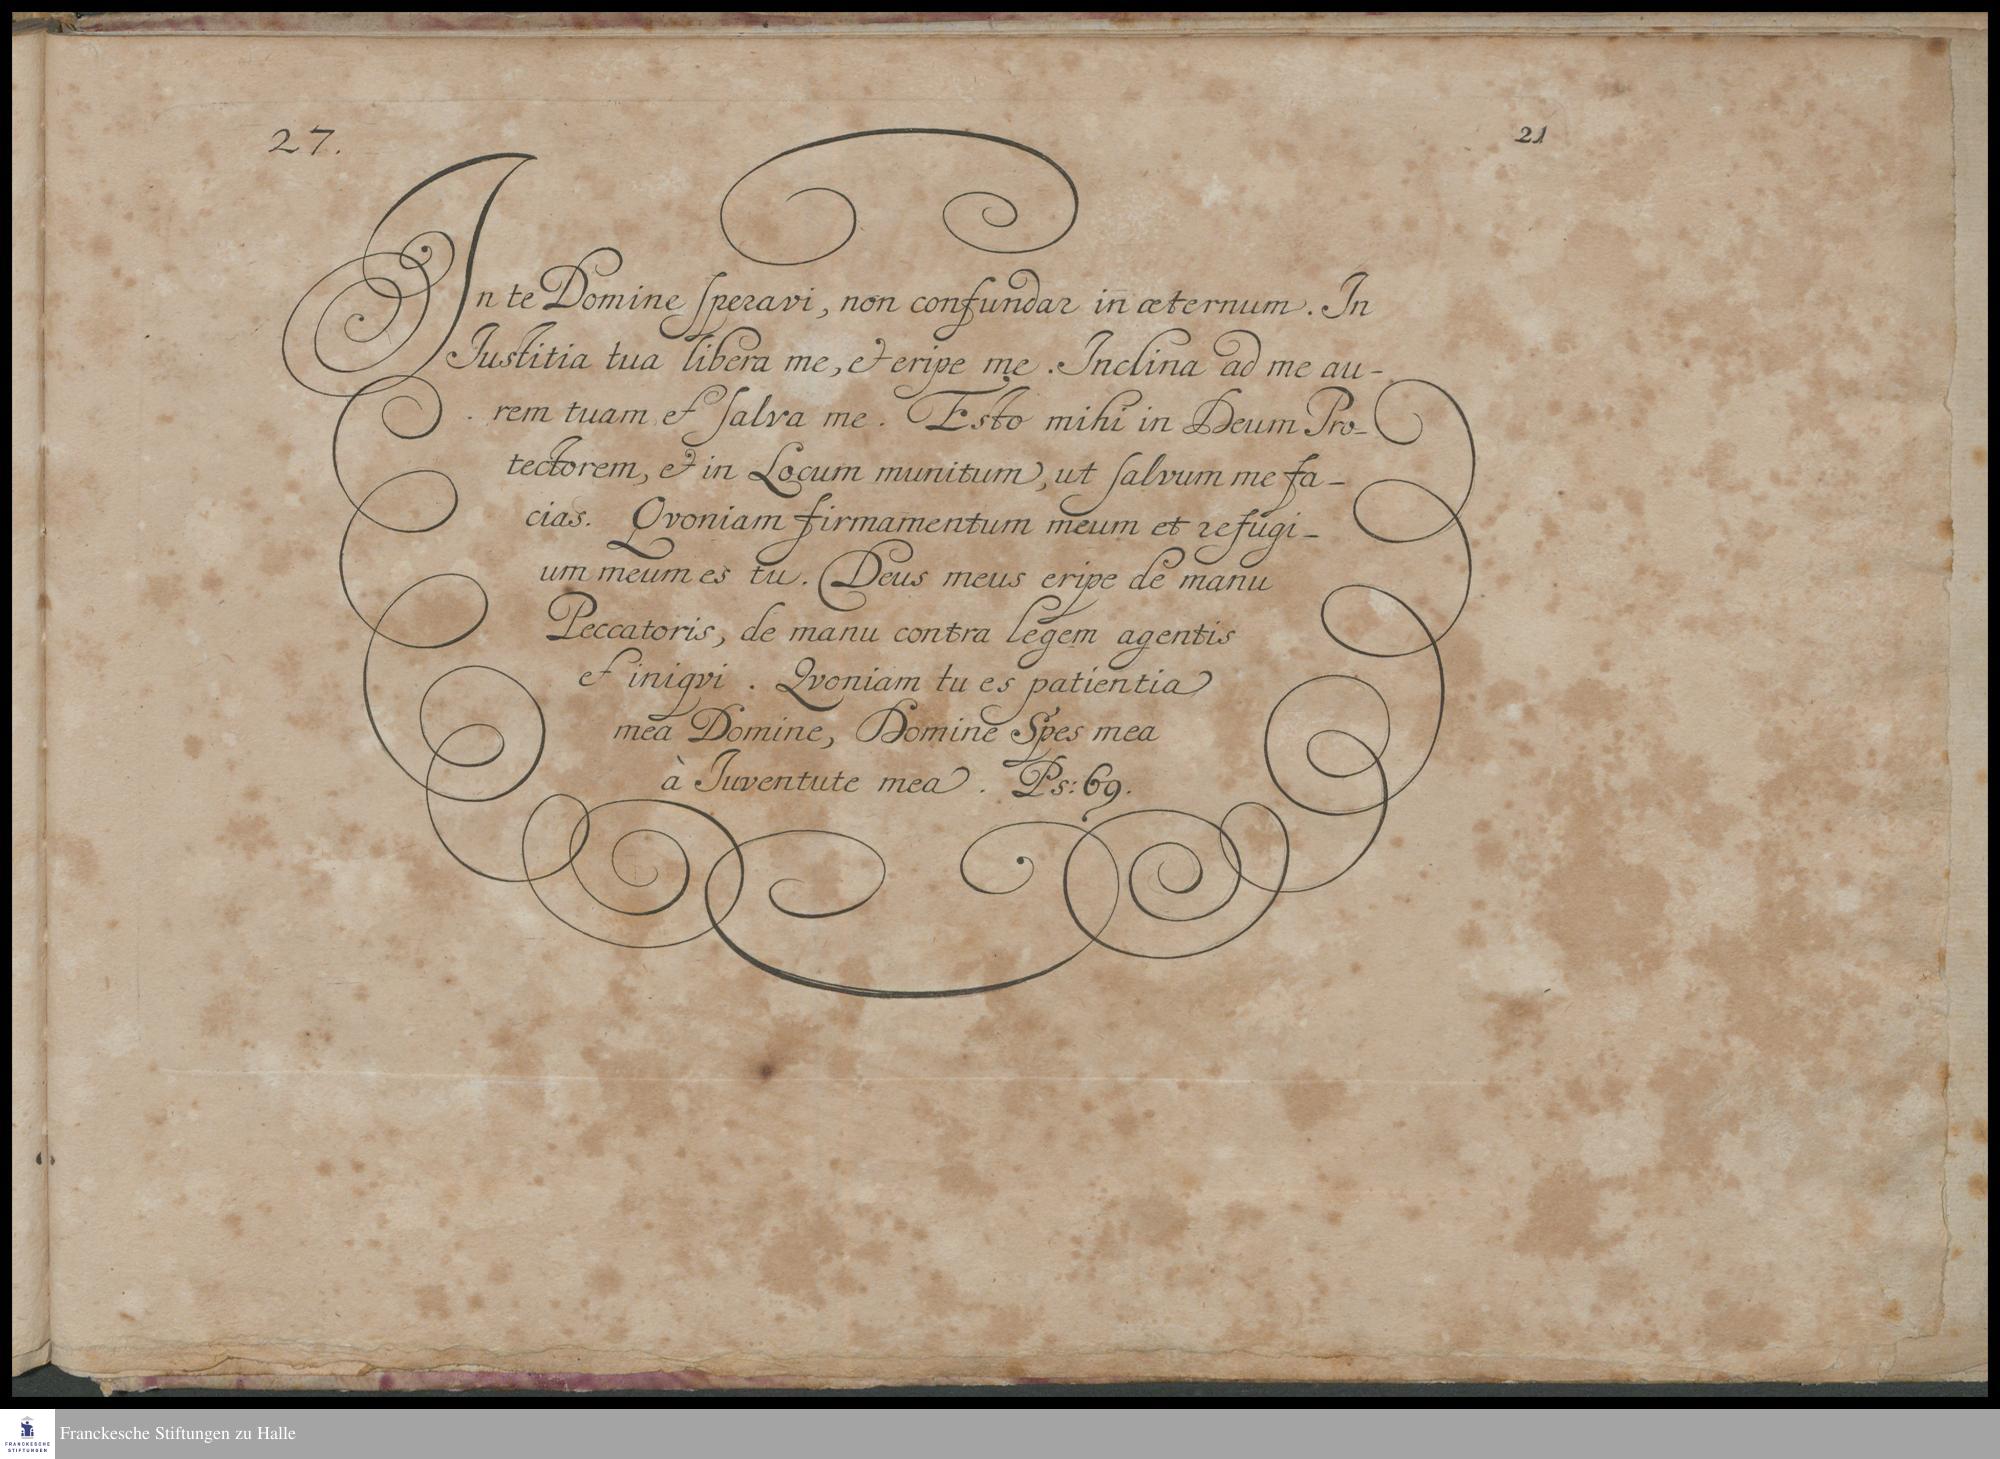 27.
21
In te Domine speravi, non confundar in æternum. In
Justitia tua libera me, et eripe me. Inclina ad me au-
rem tuam et salva me. Esto mihi in Deum Pro-
tectorem, et in Locum munitum, ut salvum me fa-
cias. Qvoniam firmamentum meum et refugi-
um meum es tu. Deus meus eripe de manu
Peccatoris, de manu contra legem agentis
et iniqvi. Qvoniam tu es patientia
mea Domine, Domine Spes mea
à Juventute mea. Ps: 69.
Franckesche Stiftungen zu Halle
FRANCKESCHE
STIFTUNGEN